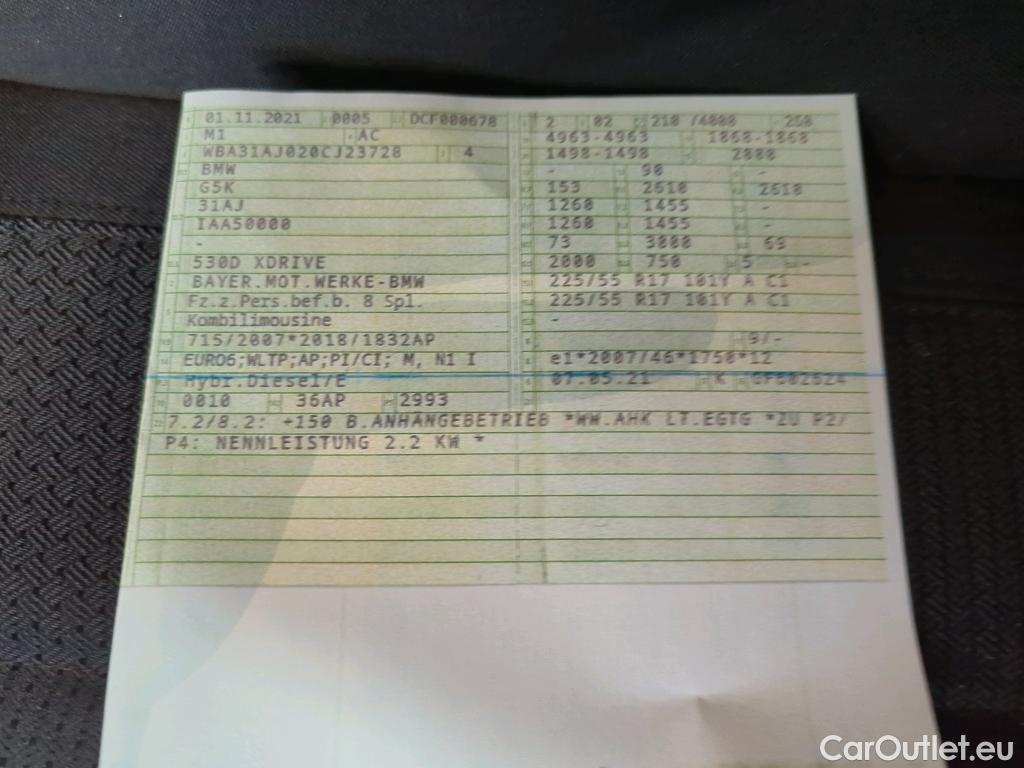 01.11.2021 0005 DCF000678 2 02 210 /4000 - 250
M1 AC 4963-4963 1868-1868
WBA31AJ020CJ23728 4 1498-1498 2000
BMW - 90
G5K 153 2610 2610
31AJ 1260 1455 -
IAA50000 1260 1455 -
- 73 3000 69
530D XDRIVE 2000 750 5 -
BAYER.MOT.WERKE-BMW 225/55 R17 101Y A C1
Fz.z.Pers.bef.b. 8 Spl. 225/55 R17 101Y A C1
Kombilimousine -
715/2007*2018/1832AP 9/-
EURO6;WLTP;AP;PI/CI; M, N1 I e1*2007/46*1750*12
Hybr.Diesel/E 07.05.21 K GF602624
0010 36AP 2993
7.2/8.2: +150 B.ANHÄNGEBETRIEB *WW.AHK LT.EGTG *ZU P2/
P4: NENNLEISTUNG 2.2 KW *
CarOutlet.eu